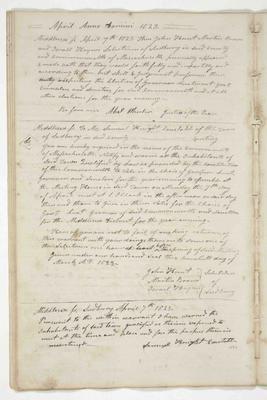 April Anno Domini 1823.
Middlesex ss. April 7th 1823. Then John Hunt Martin Brown
and Israel Haynes Selectmen of Sudbury in said County
and Commonwealth of Massachusetts personally appeared
& made oath that they would faithfully and impartially and
according to their best skill & judgment perform their
duty respecting the election of Governor Lieutenant govt
Counsellors and Senators for said Commonwealth and all
other elections for the year ensuing.
Before me Abel Wheeler
Middlesex ss. To Mr. Samuel Knight Constable of the Town
of Sudbury in said County Greeting
You are hereby required in the name of the Commonwealth
of Massachusetts to notify and warn all the Inhabitants of
said Town qualified by law as provided by the constitution
of this Commonwealth to vote in the choice of Governor Lieut
Governor and Senators for the year ensuing to assemble at
the Meeting House in said Town on Monday the 7th day
of April next at o'Clock in the afternoon on said day
then and there to give in their votes for the choice of
Govt. Lieut. Governor of said Commonwealth and Senators
for the Middlesex District for the year ensuing.
Hereof you are not to fail of making return of
this warrant with your doings thereon to some one of
the Selectmen
Given under our hands and Seal this day of
March AD. 1823.
John Hunt
Martin Brown
Israel Haynes
Selectmen
of
Sudbury
Middlesex ss. Sudbury April 7th 1823.
Pursuant to the within warrant I have warned the
Inhabitants of said town qualified as therein expressed to
meet at the time and place and for the purpose therein
mentioned.
Samuel Knight Constable